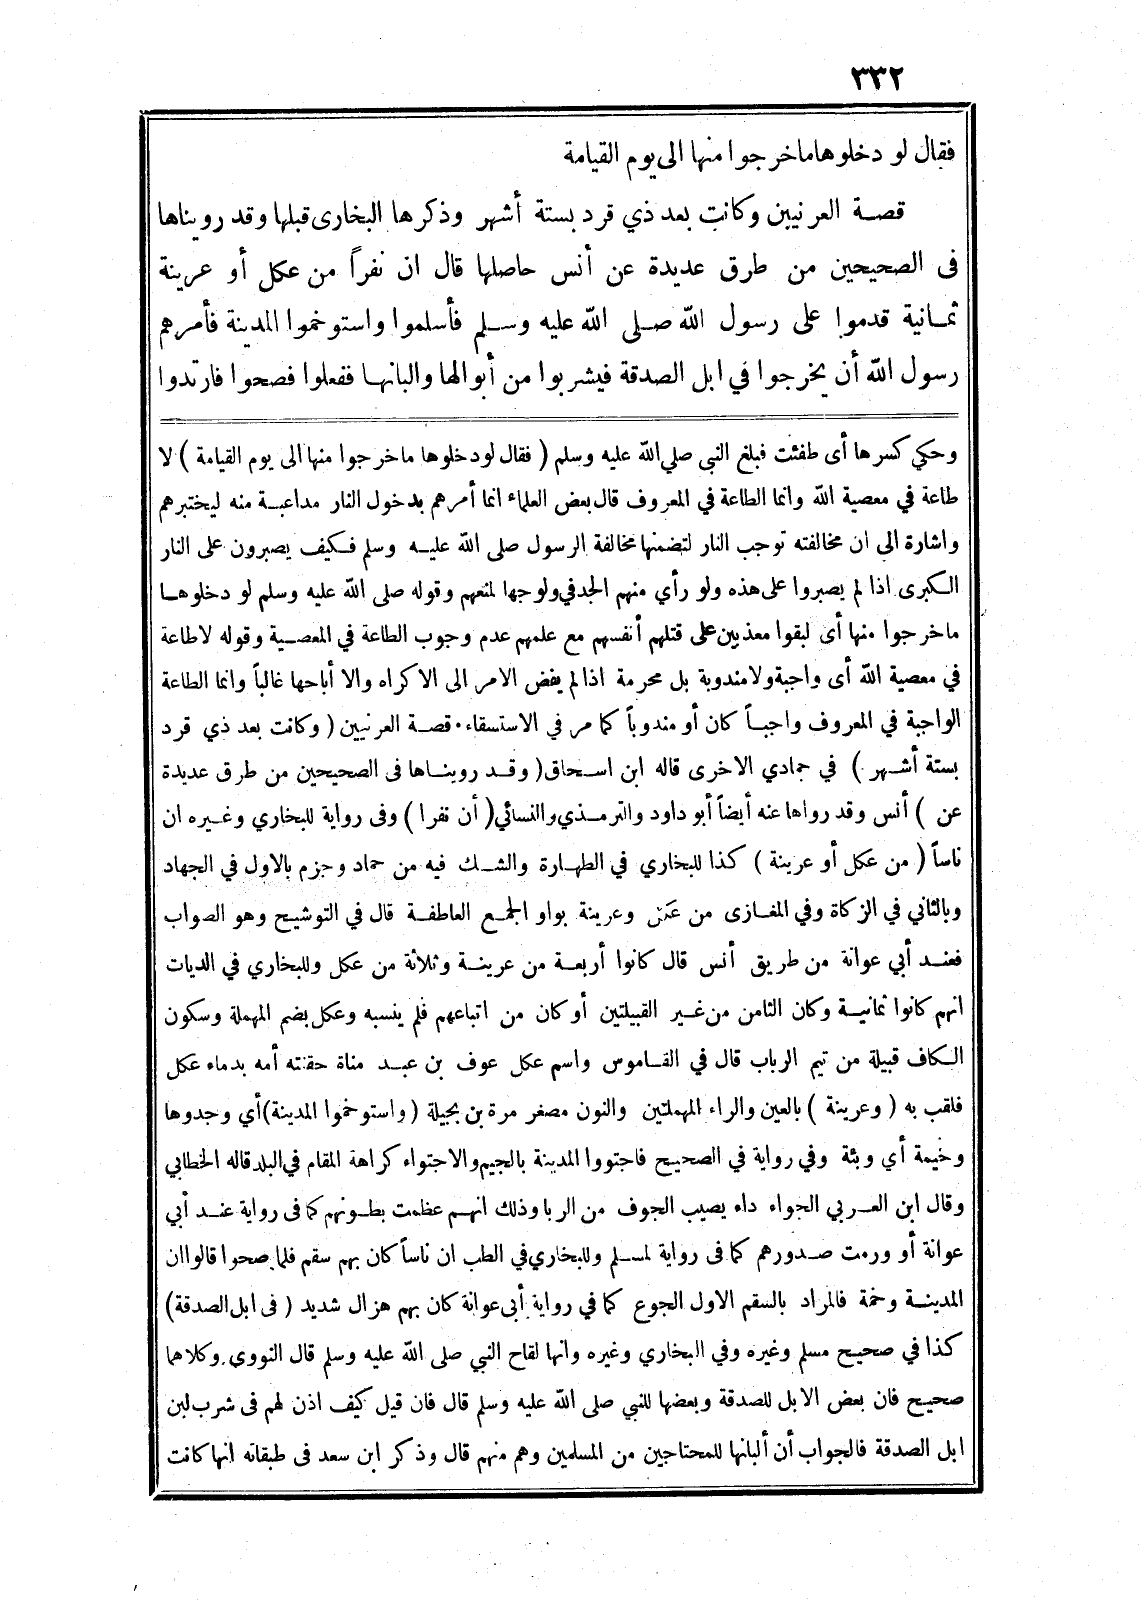 ٣٣٢
فقال لو دخلوها ماخرجوا منها الى يوم القيامة
قصة العرنيين وكانت بعد ذي قرد بستة أشهر وذكرها البخارى قبلها وقد رويناها
فى الصحيحين من طرق عديدة عن أنس حاصلها قال ان نفراً من عكل أو عرينة
ثمانية قدموا على رسول الله صلى الله عليه وسلم فأسلموا واستوخموا المدينة فأمرهم
رسول الله أن يخرجوا في ابل الصدقة فيشربوا من أبوالها والبانها ففعلوا فصحوا فارتدوا
وحكي كسرها أى طفئت فبلغ النبي صلى الله عليه وسلم ( فقال لودخلوها ماخرجوا منها الى يوم القيامة ) لا
طاعة في معصية الله وانما الطاعة في المعروف قال بعض العلماء انما أمرهم بدخول النار مداعبة منه ليختبرهم
واشارة الى ان مخالفته توجب النار لتضمنها مخالفة الرسول صلى الله عليه وسلم فكيف يصبرون على النار
الكبرى اذا لم يصبروا على هذه ولو رأي منهم الجد في ولوجها لمنعهم وقوله صلى الله عليه وسلم لو دخلوها
ماخرجوا منها أى لبقوا معذبين على قتلهم أنفسهم مع علمهم عدم وجوب الطاعة في المعصية وقوله لاطاعة
في معصية الله أى واجبة ولا مندوبة بل محرمة اذا لم يفض الامر الى الاكراه والا أباحها غالباً وانما الطاعة
الواجبة في المعروف واجباً كان أو مندوباً كما مر في الاستسقاء • قصة العرنيين ( وكانت بعد ذي قرد
بستة أشهر ) في جمادي الاخرى قاله ابن اسحاق ( وقد رويناها فى الصحيحين من طرق عديدة
عن ) أنس وقد رواها عنه أيضاً أبو داود والترمذي والنسائي ( أن نفرا ) وفى رواية للبخاري وغيره ان
ناساً ( من عكل أو عرينة ) كذا للبخاري في الطهارة والشك فيه من حماد وجزم بالاول في الجهاد
وبالثاني في الزكاة وفي المغازى من عكل وعرينة بواو الجمع العاطفة قال في التوشيح وهو الصواب
فعند أبي عوانة من طريق أنس قال كانوا أربعة من عرينة وثلاثة من عكل وللبخاري في الديات
انهم كانوا ثمانية وكان الثامن من غير القبيلتين أو كان من اتباعهم فلم ينسبه وعكل بضم المهملة وسكون
الكاف قبيلة من تيم الرباب قال في القاموس واسم عكل عوف بن عبد مناة حقنته أمه بدماء عكل
فلقب به ( وعرينة ) بالعين والراء المهملتين والنون مصغر مرة بن بجيلة ( واستوخموا المدينة ) أي وجدوها
وخيمة أي وبئة وفي رواية في الصحيح فاجتووا المدينة بالجيم والاجتواء كراهة المقام في البلد قاله الخطابي
وقال ابن العربي الجواء داء يصيب الجوف من الربا وذلك انهم عظمت بطونهم كما فى رواية عند أبي
عوانة أو ورمت صدورهم كما فى رواية لمسلم وللبخاري في الطب ان ناساً كان بهم سقم فلما صحوا قالوا ان
المدينة وخمة فالمراد بالسقم الاول الجوع كما في رواية أبى عوانة كان بهم هزال شديد ( فى ابل الصدقة )
كذا في صحيح مسلم وغيره وفي البخاري وغيره وانها لقاح النبي صلى الله عليه وسلم قال النووى وكلاهما
صحيح فان بعض الابل للصدقة وبعضها للنبي صلى الله عليه وسلم قال فان قيل كيف اذن لهم فى شرب لبن
ابل الصدقة فالجواب أن ألبانها للمحتاجين من المسلمين وهم منهم قال وذكر ابن سعد فى طبقاته انها كانت